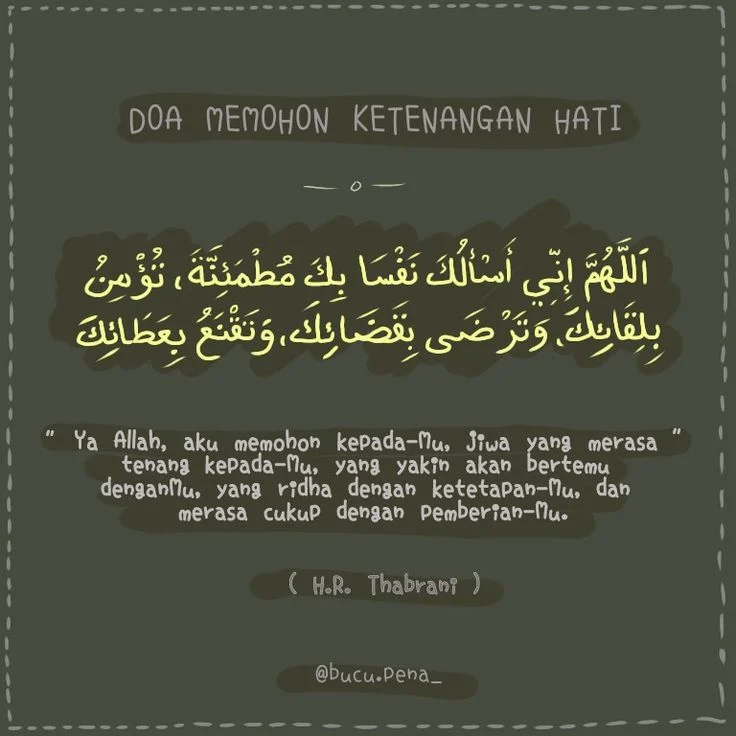 DOA MEMOHON KETENANGAN HATI
اَللَّهُمَّ إِنِّي أَسْأَلُكَ نَفْسَا بِكَ مُطْمَئِنَّةَ، تُؤْمِنُ
بِلِقَائِكَ، وَتَرْضَى بِقَضَائِكَ، وَتَقْنَعُ بِعَطَائِكَ
" Ya Allah, aku memohon kepada-Mu, jiwa yang merasa "
tenang kepada-Mu, yang yakin akan bertemu
denganMu, yang ridha dengan ketetapan-Mu, dan
merasa cukup dengan pemberian-Mu.
( H.R. Thabrani )
@bucu.pena_